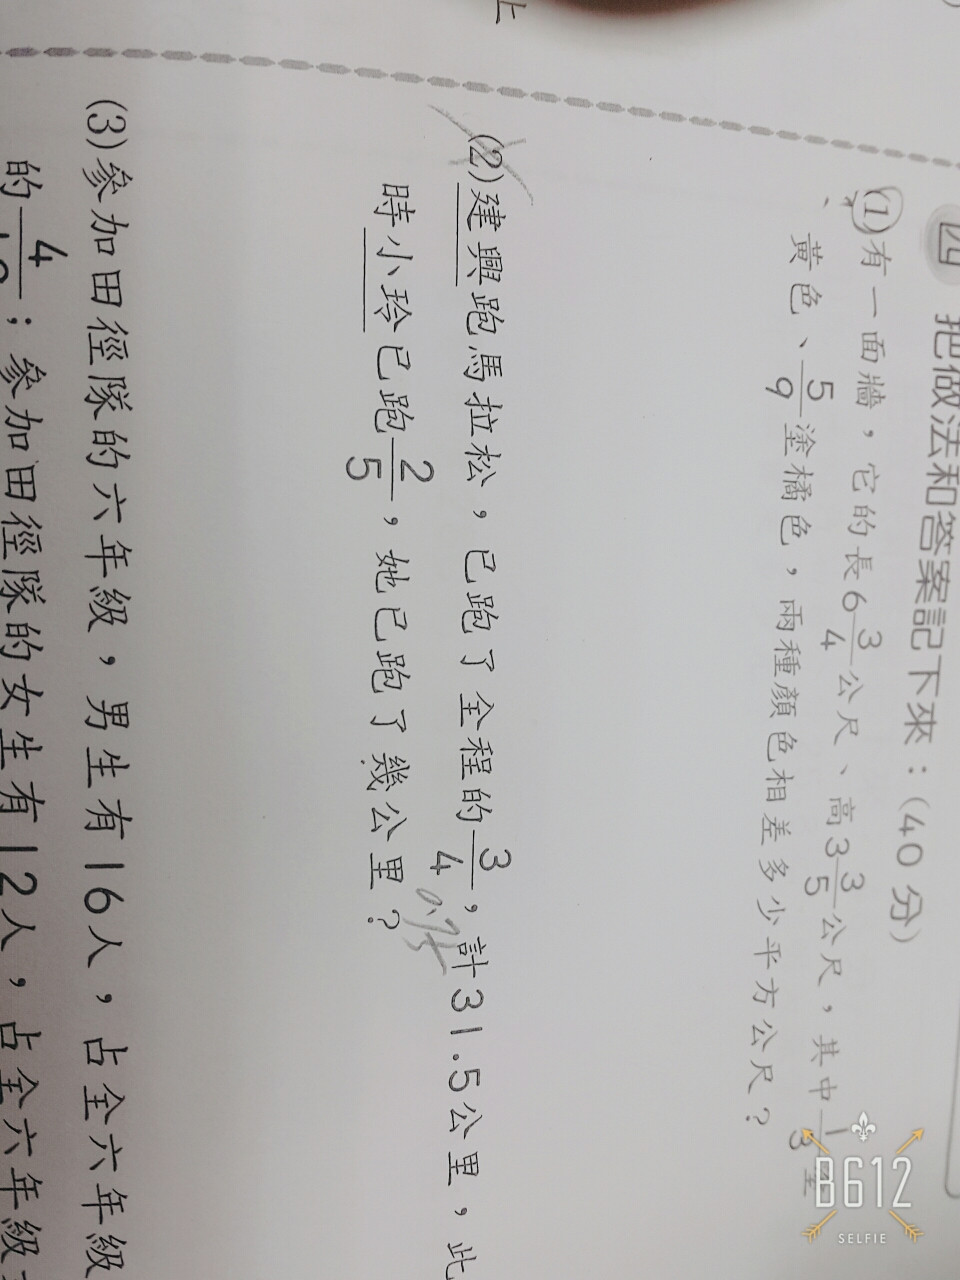 四 把做法和答案記下來:(40分)
(1)有一面牆,它的長6 3/4公尺、高3 3/5公尺,其中1/3塗
黃色、5/9塗橘色,兩種顏色相差多少平方公尺?
(2)建興跑馬拉松,已跑了全程的3/4,計31.5公里,此
0.75
時小玲已跑2/5,她已跑了幾公里?
(3)參加田徑隊的六年級,男生有16人,占全六年級
的4/;參加田徑隊的女生有12人,占全六年級
上
B612
SELFIE